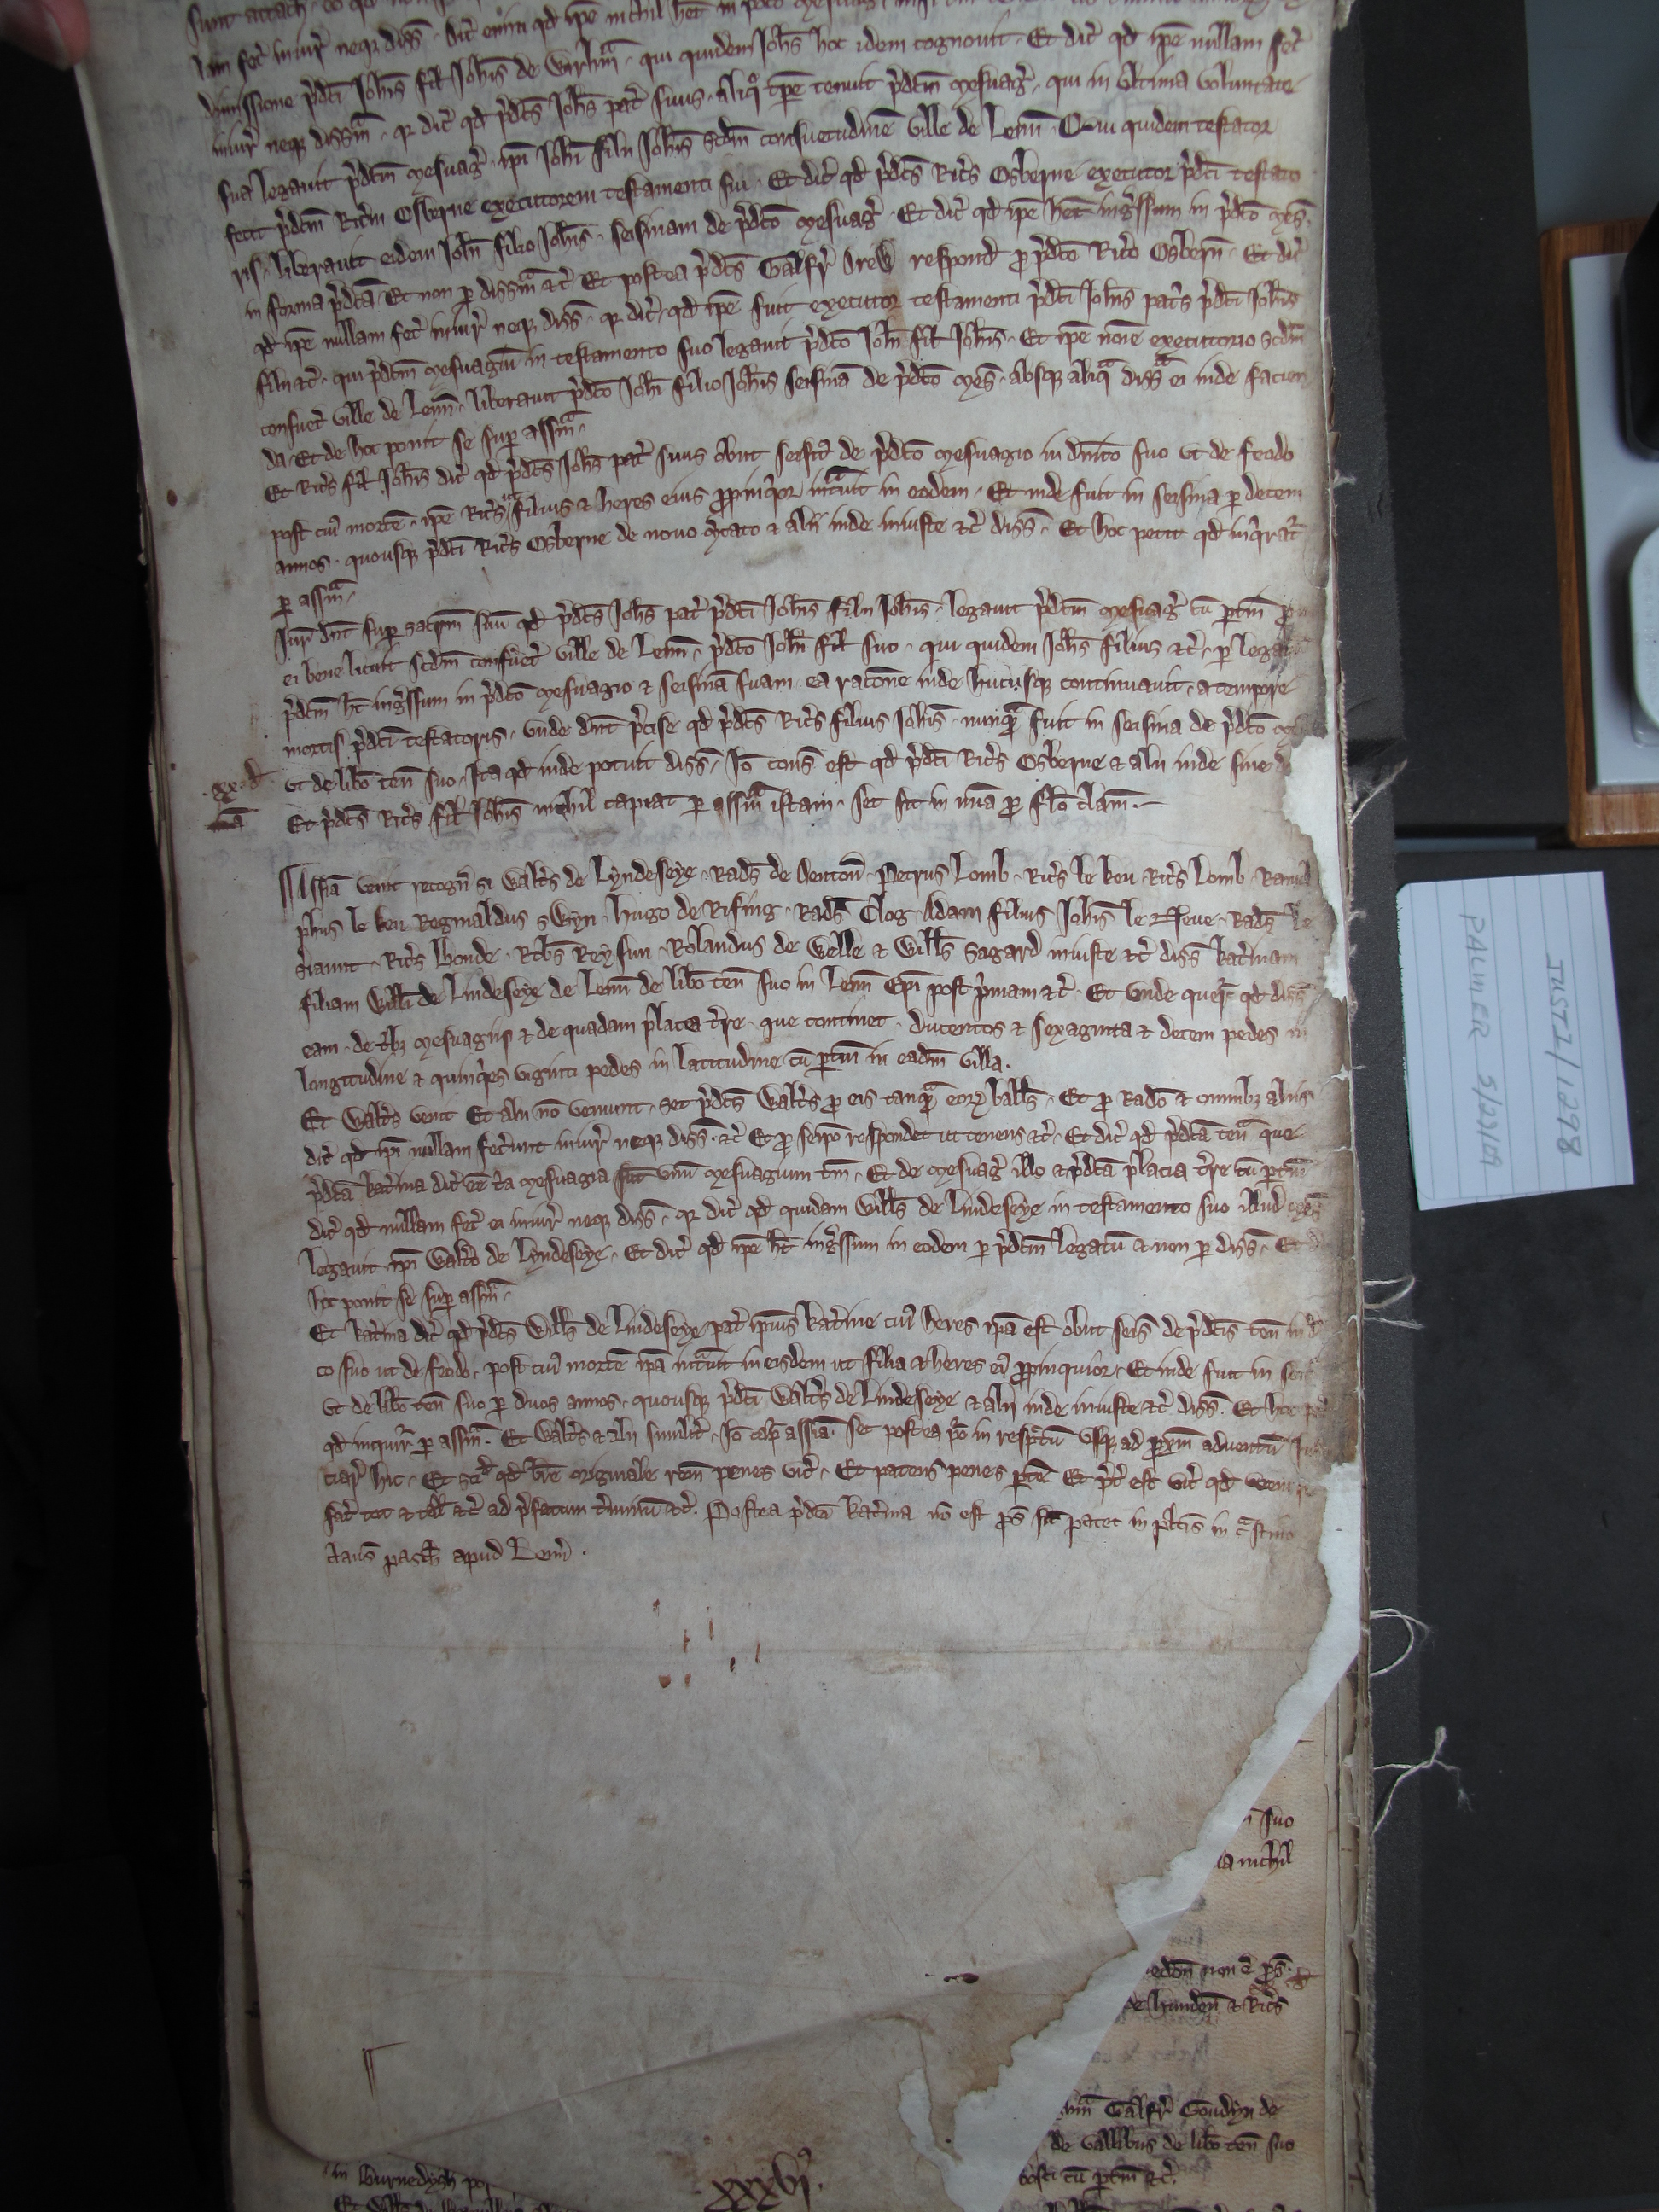 lam fec̄ iniur̄ neqꝫ diss̄. Dic̄ eni qd ip̄e nichil het in
dimissione p̄dc̄i Joh̄is fil Joh̄is de qui quidem Joh̄s hoc idem cognouit. Et dic̄ qd ip̄e nullam fec̄
iniur̄ neqꝫ dissm̄. qꝛ dic̄ qd p̄dc̄s Joh̄s pat̄ suus. aliqͦ tp̄e tenuit p̄dc̄m mesuaḡ. qui in ultima voluntate
sua legauit p̄dc̄m mesuaḡ. ip̄i Joh̄i filii Joh̄is scdm̄ consuetudinē ville de Lenn̄. Qui quidem testator
fecit p̄dc̄m Ric̄m Osberne executorem testamenti sui. Et dic̄ qd p̄dc̄s Ric̄s Osberne executor p̄dc̄i testato
ris. liberauit eidem Joh̄i filio Joh̄is. seisinam de p̄dc̄o mesuaḡ. Et dic̄ qd ip̄e het inḡssum in p̄dc̄o mes̄.
in forma p̄dc̄a. Et non ꝑ dissm̄ ⁊c̄. Et postea p̄dc̄s Galfr̄ Drew respond̄ ꝓ p̄dc̄o Ric̄o Osbern̄. Et dic̄
qd ip̄e nullam fec̄ iniur̄ neqꝫ diss̄. qꝛ dic̄. qd ip̄e fuit executor testamenti p̄dc̄i Joh̄is pat̄s p̄dc̄i Joh̄is
filii ⁊c̄. qui p̄dc̄m mesuagiū in testamento suo legauit p̄dc̄o Joh̄i fil Joh̄is. Et ip̄e noīe executorio scdm̄
consuet̄ ville de Lenn̄. liberauit p̄dc̄o Joh̄i filio Joh̄is seisinā de p̄dc̄o mes̄. absqꝫ aliqᵃ diss̄ ei inde facien
da. Et de hoc ponit se suꝑ assm̄.
Et Ric̄s fil Joh̄is dic̄ qd p̄dc̄s Joh̄s pat̄ suus obiit seisit̄ de p̄dc̄o mesuagio in dn̄ico suo ut de feodo
post cuiꝰ mortē. ip̄e Ric̄s ut filius ⁊ heres eius ꝓpinqior int̄uit in eodem. Et inde fuit in seisina ꝑ decem
annos. quousqꝫ p̄dc̄i Ric̄s Osberne de nouo m̄cato ⁊ alii inde iniuste ⁊c̄ diss̄. Et hoc petit qd inqirat̄
ꝑ assm̄.
Jur̄ dn̄t suꝑ sacr̄m suū qd p̄dc̄s Joh̄s pat̄ p̄dc̄i Joh̄is filii Joh̄is. legauit p̄dc̄m mesuaḡ cū ꝑtin̄
ei bene licuit scdm̄ consuet̄ ville de Lenn̄. p̄dc̄o Joh̄i fil suo. qui quidem Joh̄s filius ⁊c̄. ꝑ legat
p̄dc̄m ht̄ inḡssum in p̄dc̄o mesuagio ⁊ seisinā suam. ea racōne inde hucusqꝫ continuauit. a tempore
mortis p̄dc̄i testatoris. unde dn̄t p̄cise qd p̄dc̄s Ric̄s filius Joh̄is. nunqᵃ fuit in seisina de p̄dc̄o
ut de libō ten̄ suo. Ita qd inde potuit diss̄. Jō cons̄ est qd p̄dc̄i Ric̄s Osberne ⁊ alii inde sine
.xx. d̄
mīa
Et p̄dc̄s Ric̄s fil Joh̄is nichil capiat ꝑ assm̄ istam. set sit in mīa ꝓ flō clam̄.
Assīa venit recogn̄ si Walt̄s de Lyndeseye. Rads̄ de Dentoun̄. Petrus Lomb. Ric̄s le keu. Ric̄s Lomb. Ranul
phus le keu. Reginaldus swyn. Hugo de Rising. Rads̄ Clog. Adam filius Joh̄is le Neue. Rads̄ le
Ric̄s Bonde. Rob̄s Rey sun. Rolandus de Welle ⁊ Will̄s Sagard iniuste ⁊c̄ diss̄ Kat̄inam
filiam Will̄i de Lindeseye de Lenn̄ de libō ten̄ suo in Lenn̄ Ep̄i post p̄mam ⁊c̄. Et unde quer̄. qd diss̄
eam. de t̄bꝫ mesuagiis ⁊ de quadam placea t̄re. que continet. ducentos ⁊ sexaginta ⁊ decem pedes in
longitudine ⁊ quinqies viginti pedes in latitudine cū ꝑtin̄ in eadm̄ villa.
Et Walt̄s venit. Et alii nō veniunt. set p̄dc̄s Walt̄s ꝓ eis tanqᵃ eoꝝ ball̄s. Et ꝓ Radō ⁊ omnibꝫ aliis
dic̄ qd ip̄i nullam fec̄unt iniur̄ neqꝫ diss̄. ⁊c̄. Et ꝓ seip̄o respondet ut tenens ⁊c̄. Et dic̄ qd p̄dc̄a ten̄ que
p̄dc̄a Kat̄ina dic̄ ee t̄a mesuagia sūt unū mesuagium tm̄. Et de mesuaḡ illo ⁊ p̄dc̄a placia t̄re cū ꝑtin̄
dic̄ qd nullam fec̄ ei iniur̄ neqꝫ diss̄. qꝛ dic̄ qd quidam Will̄s de Lindeseye in testamento suo illud mes̄
legauit. ip̄i Walt̄o de Lyndeseye. Et dic̄ qd ip̄e ht̄ inḡssum in eodem ꝑ p̄dc̄m legatū ⁊ non ꝑ diss̄. Et
hoc ponit se suꝑ assm̄.
Et Kat̄ina dic̄ qd p̄dc̄s Will̄s de Lindeseye pat̄ ip̄ius Kat̄ine cuiꝰ heres ip̄a est obiit seis̄ de p̄dc̄is ten̄ in
co suo ut de feodo. post cuiꝰ mortē ip̄a int̄uit in eisdem ut filia ⁊ heres eiꝰ ꝓpinquior. Et inde fuit in
ut de libō ten̄ suo ꝑ duos annos. quousqꝫ p̄dc̄i Walt̄s de Lindeseye ⁊ alii inde iniuste ⁊c̄ diss̄. Et hoc
qd inquir̄ ꝑ assm̄. Et Walt̄s ⁊ alii similit̄. Jō cap̄ assīa. Set postea po in resp̄ctū usqꝫ ad ꝓxm̄ aduentū
ciar̄ hic. Et sc̄d̄ qd br̄e originale rem̄ penes vic̄. Et patens penes ꝑtē. Et p̄c̄ est vic̄ qd
fac̄ tot ⁊ tal ⁊c̄ ad p̄fatum t̄minū ⁊c̄. Postea p̄dc̄a Kat̄ina nō est ꝓs̄ sic̄ patet in plitis in cᵃstino
claus̄ pasch̄ apud Lenn̄.
suo
nichil
non ē ꝓs̄
de Hunden̄ ⁊ Ric̄s
Galfr̄ Goudyn de
de Vallibus de libō ten̄ suo
in Burnedysh
cū ꝑtin̄ ⁊c̄.
xxxvj.
JUST 1/1298
PALMER 5/22/09